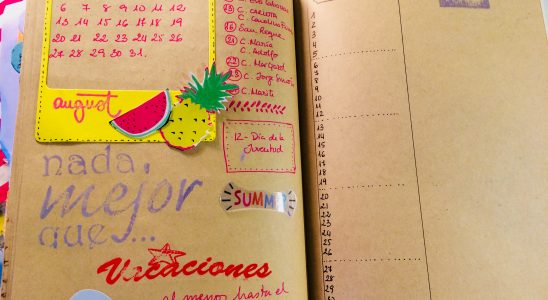 6 7 8 9 10 11 12
13 14 15 16 17 18 19
20 21 22 23 24 25 26
27 28 29 30 31.
august
C. CARLOTA
C. Carolina
16 San Roque
21 C. María
C. Adolfo
22 C. Margard
C. Jorge
C. Marita
12- Día de la
Juventud
SUMME
nada
mejor
que...
Vacaciones
al menos hasta el
1
2
3
4
5
6
7
8
9
10
11
12
13
14
15
16
17
18
19
20
21
22
23
24
25
26
27
28
29
30